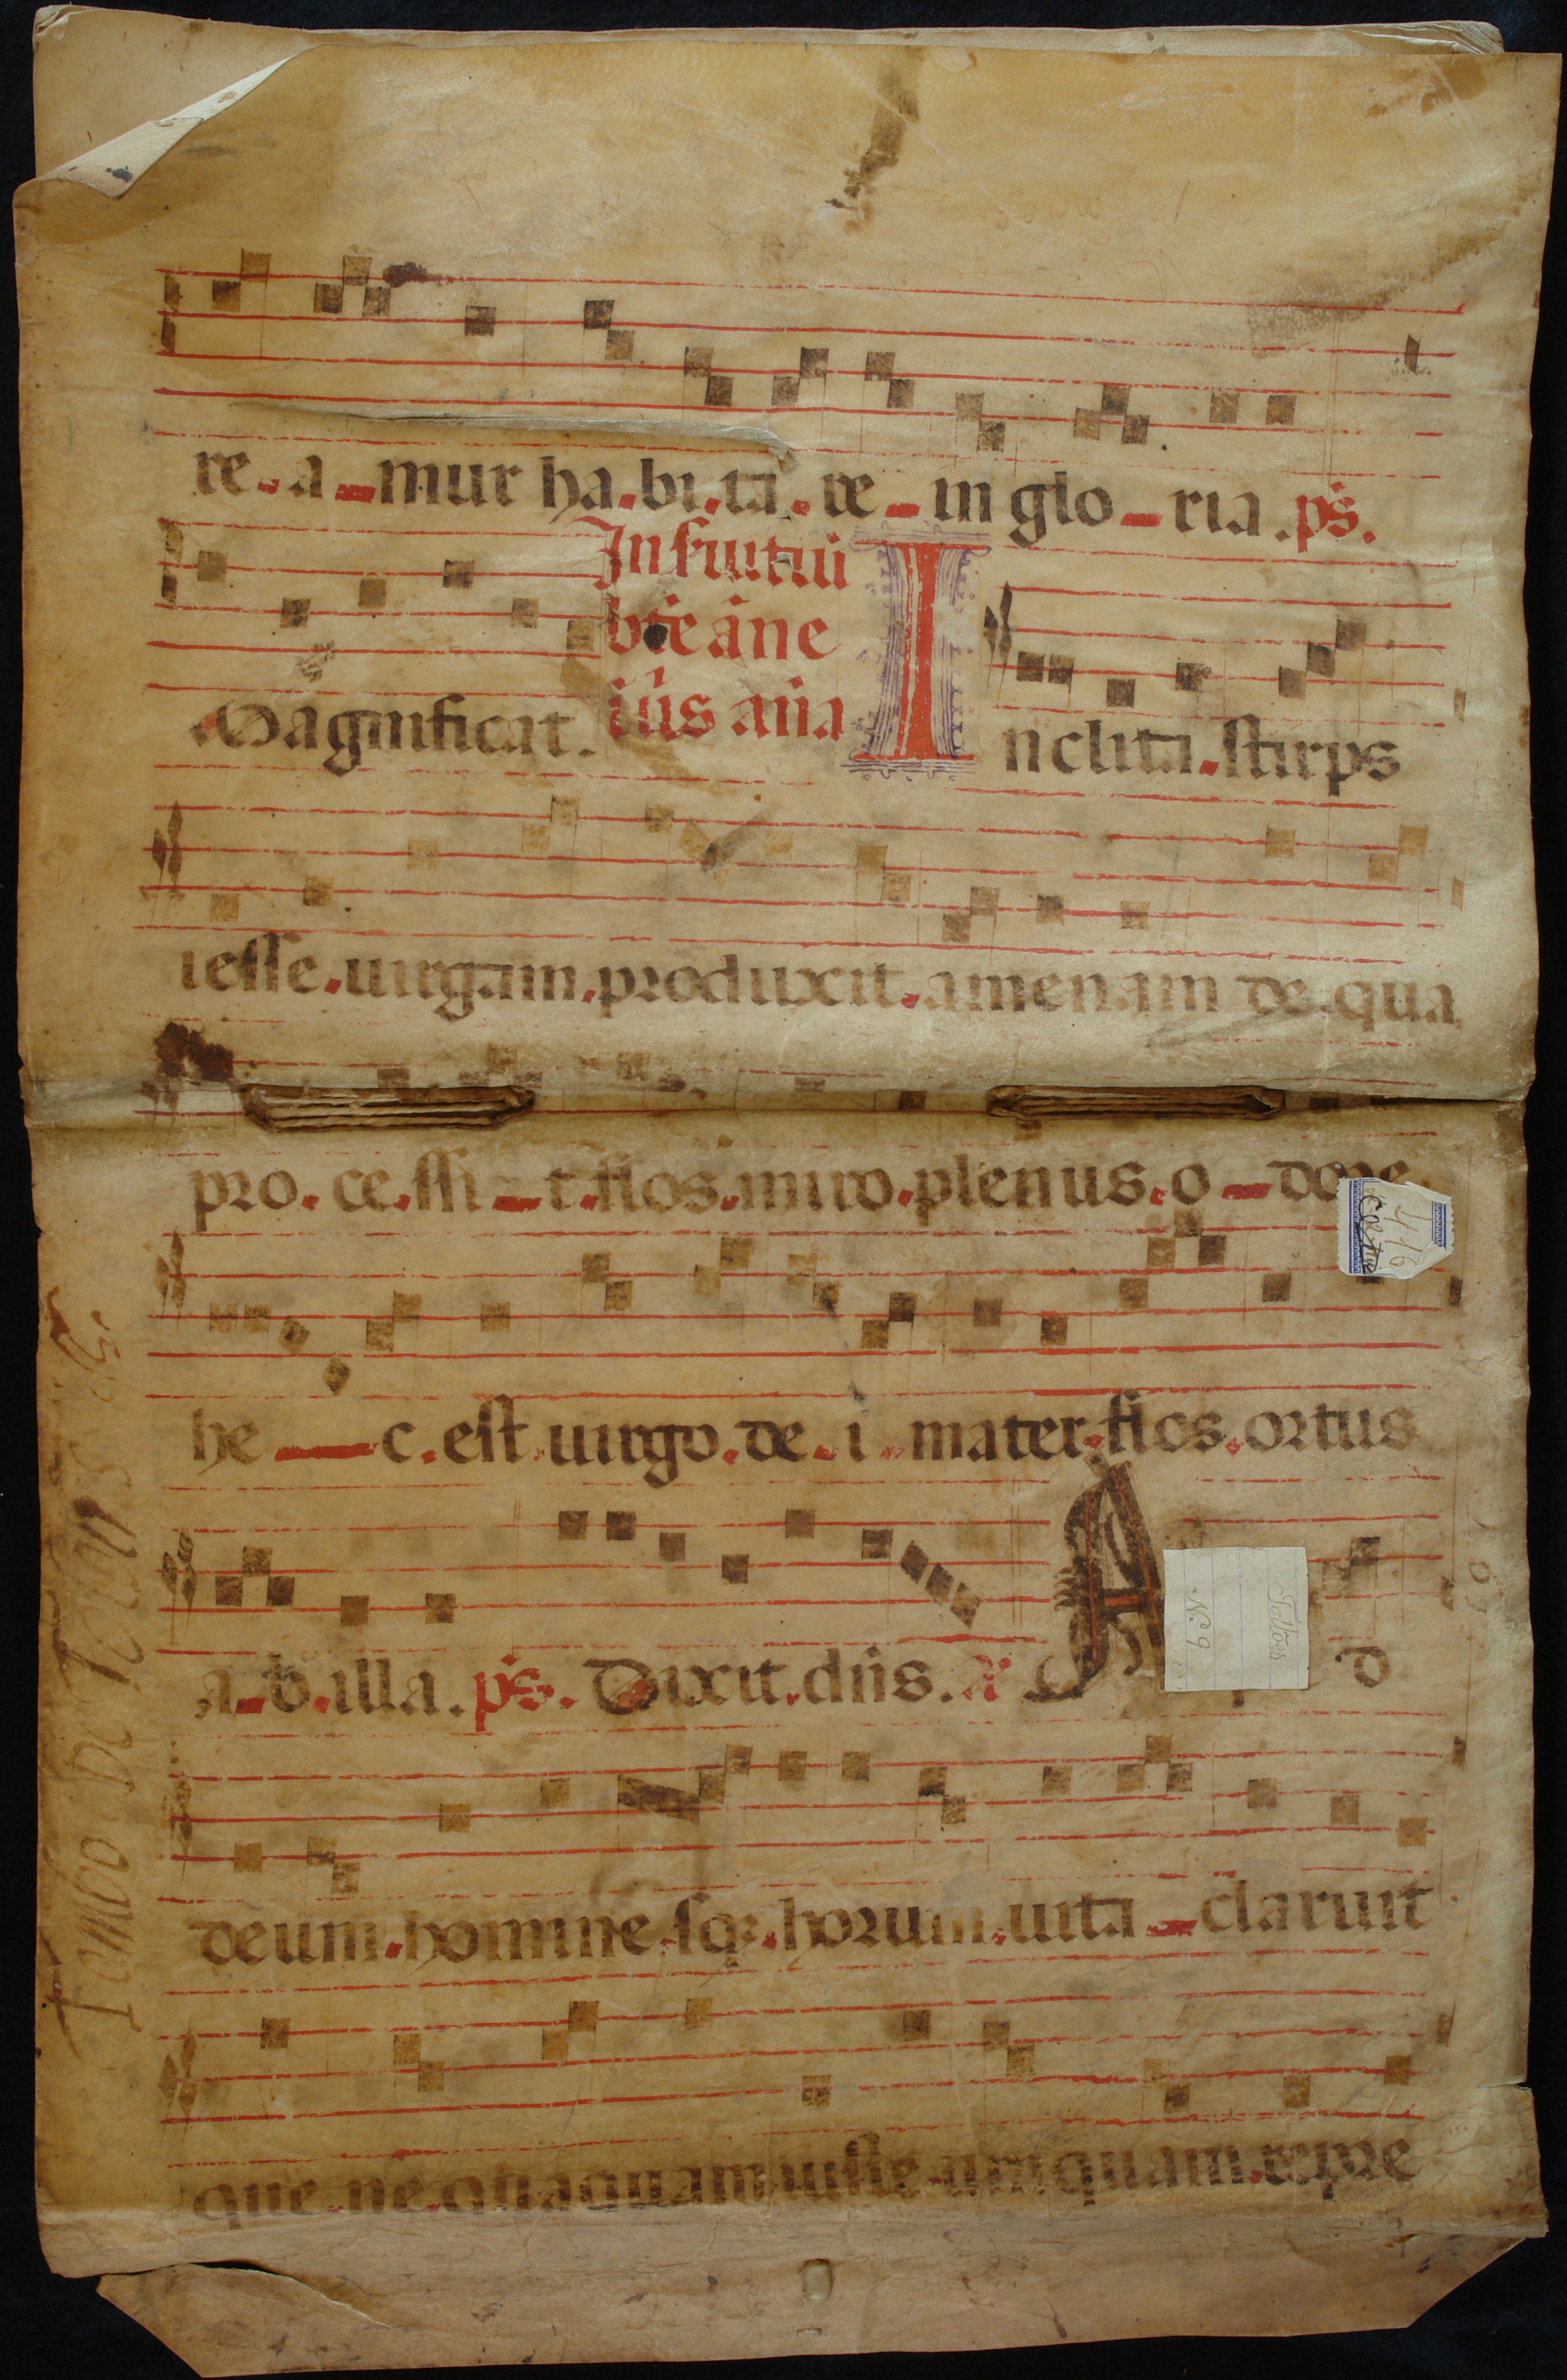 re. a mur ha.bi.ta.re in glo ria. ps.
In festiuitati
bte ane
Magnificat.
ius ana
Inclita. stirps
iesse. uirgam. produxit. amenam de. qua
pro. ce. ssi t. flos. miro. plenus. o dore
416
he c. est uirgo. de. i mater. flos. ortus
a b. illa. ps. Dixit. dns. A
d
Nº 9
deum. homine. sqz. horum. uita claruit
que. ne. quaquam iuste. umquam. repre
Tombo De